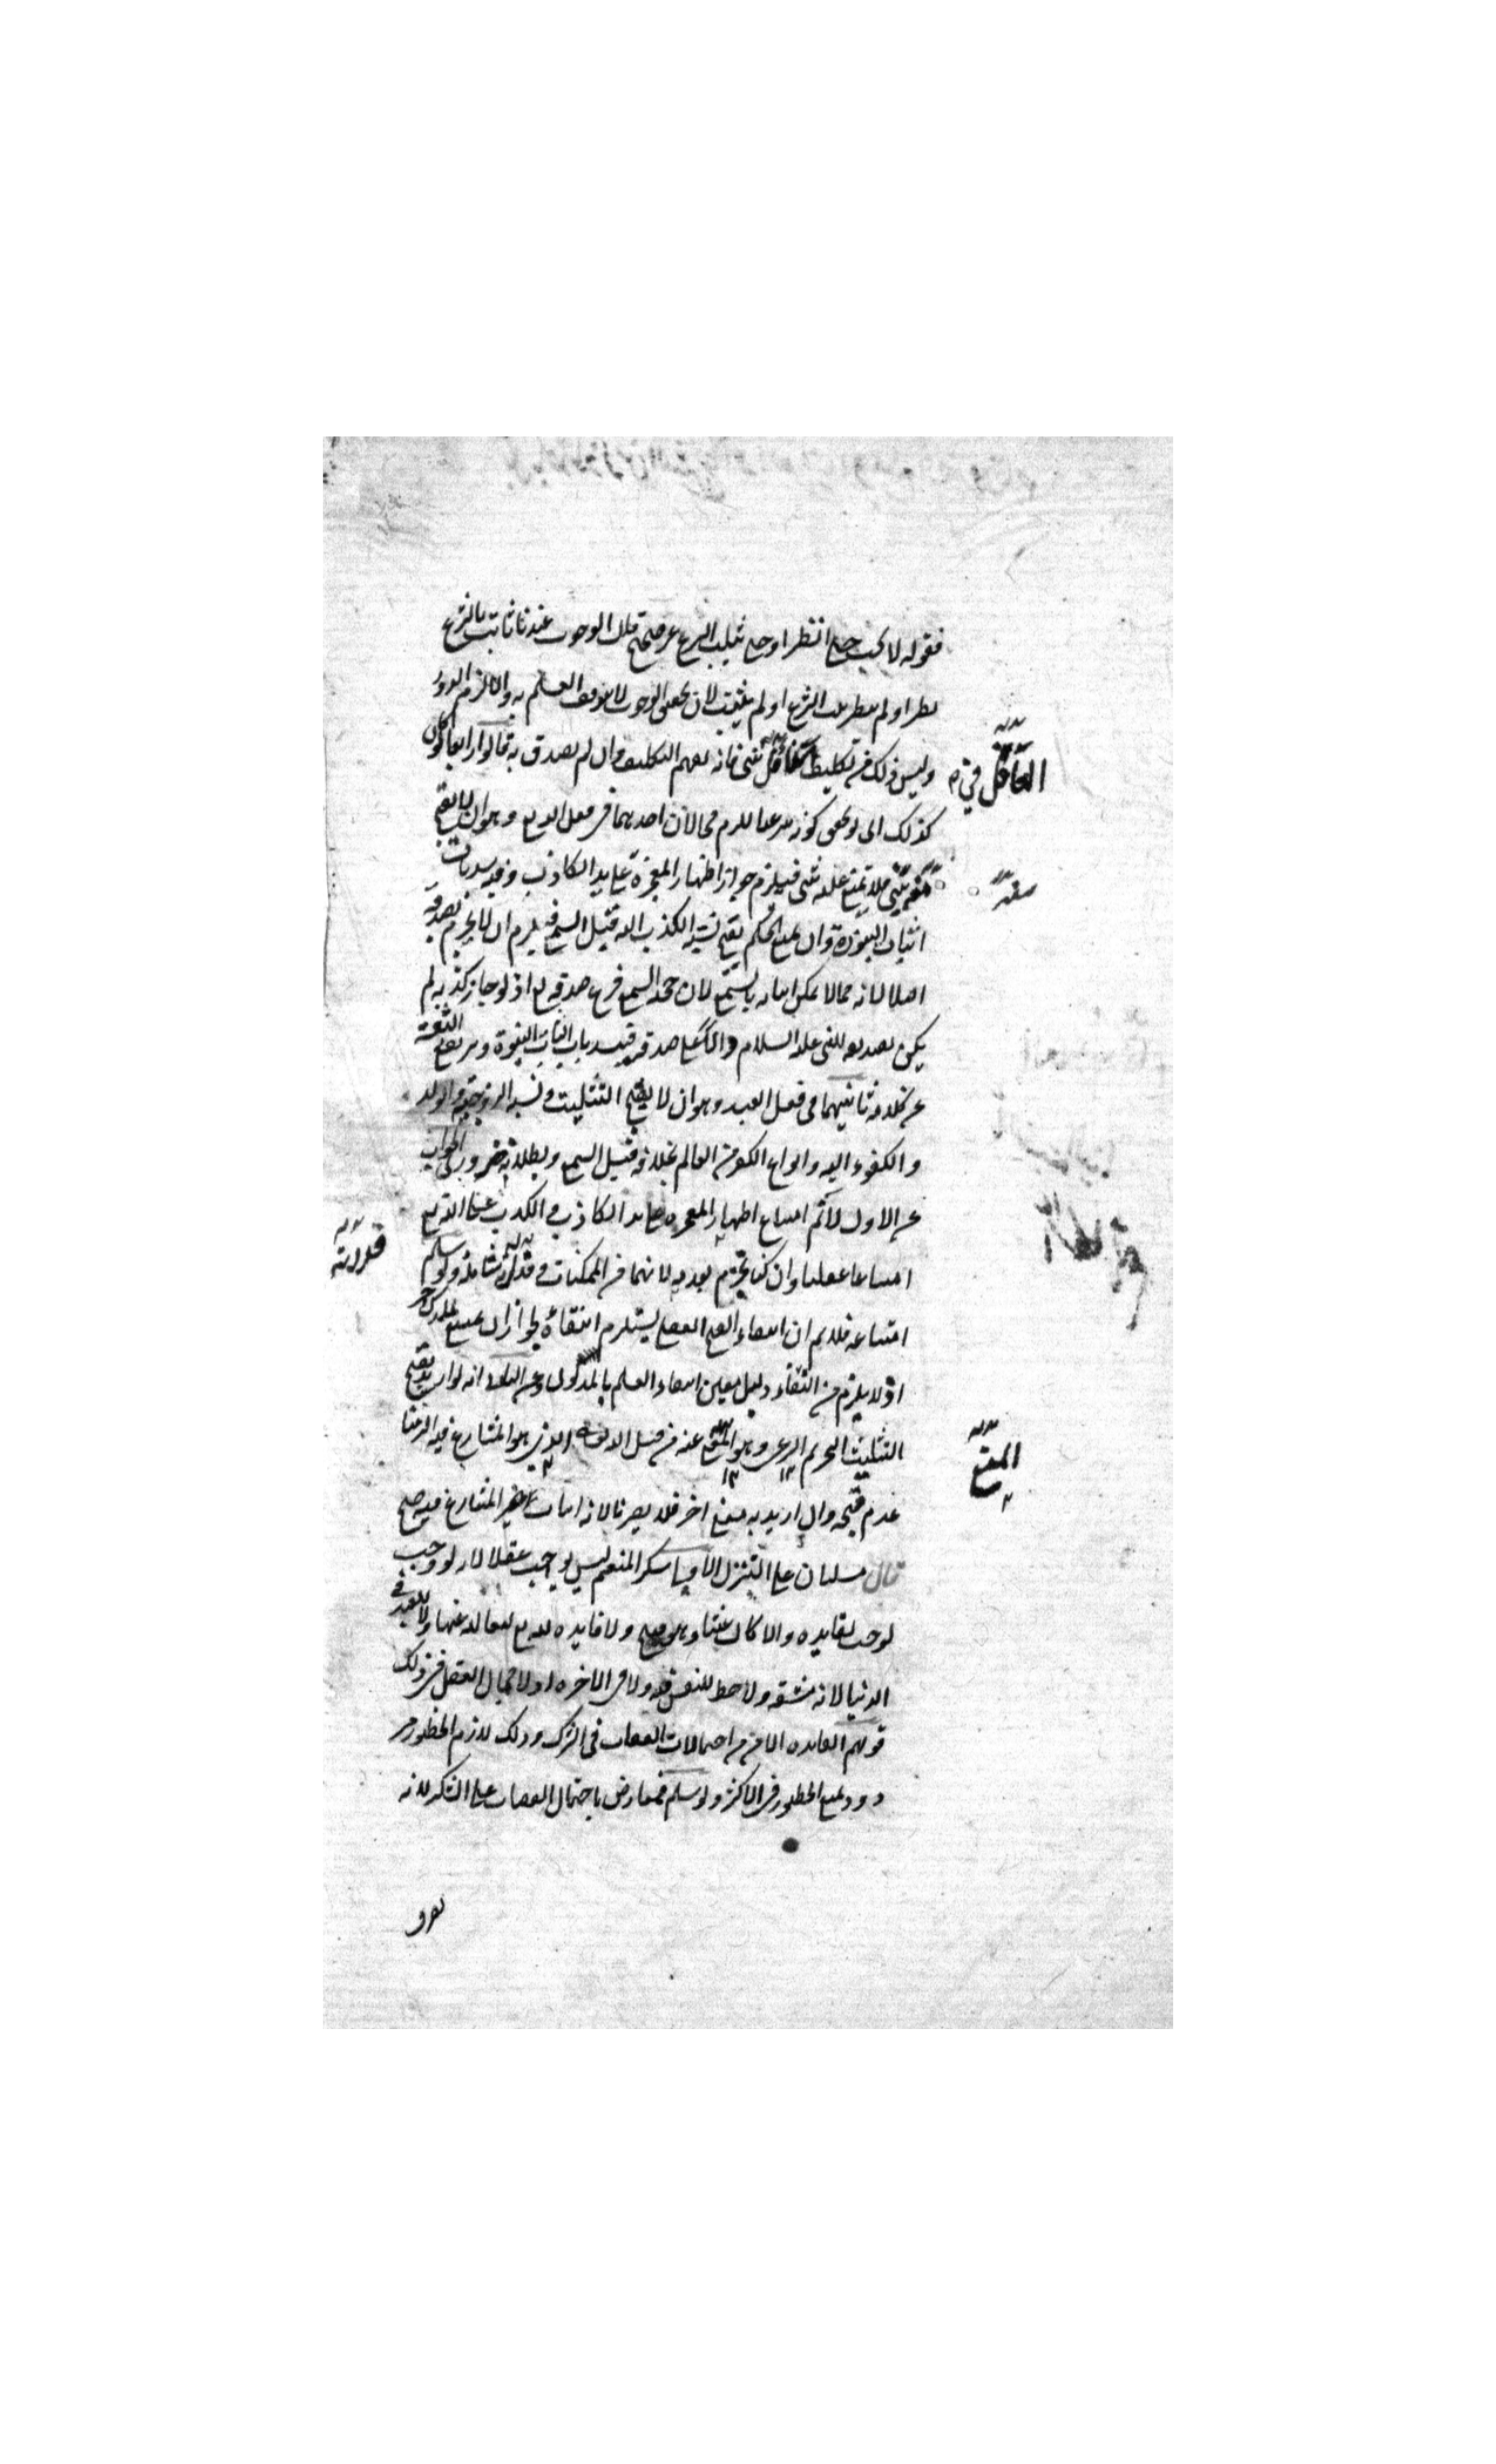 فقوله لا يجب حتى انظر او حتى يثبت الشرع غير صحيح قلنا الوجوب عندنا ثابت بالشرع
نظر او لم ينظر ثبت الشرع او لم يثبت لان تحقق الوجوب لا يتوقف العلم به والا لزم الدور
وليس ذلك من تكليف الغافل في شئ فانه يفهم التكليف وان لم يصدق به قالوا رابعا لو كان
كذلك اى لو تحقق كونه شرعيا للزم محالان احدهما فى فعل الله تع وهو ان لا يقبح
منه شئ فلا يمتنع عليه شئ فيلزم جواز اظهار المعجزة على يد الكاذب وفيه سد باب
اثبات النبوة وان يمتنع الحكم بقبح نسبة الكذب اليه قبيل السمع فيلزم ان لا يجزم بصدقه
اصلا لانه مما لا يمكن اثباته بالسمع لان حجة السمع فرع صدقه تع اذ لو جاز كذبه لم
يكن تصديقه للنبى عليه السلام دالا على صدقه وفيه سد باب اثبات النبوة
ثانيهما فى فعل العبد وهو ان لا يقبح التثليث ونسبة الزوجة والولد
والكفر اليه وانواع الكفر من العالم بخلافه قبيل السمع وبطلانه ضرورى الجواب
عن الاول لا نم امتناع اظهار المعجزة على يد الكاذب والكذب على الله تع
امتناعا عقليا وان كنا نجزم بعدمه لانهما من الممكنات وقدرته شاملة ولو سلم
امتناعه فلا نم ان انتفاء القبح العقلى يستلزم انتفاءه لجواز ان يمتنع لمدرك اخر
اذ لا يلزم من انتفاء دليل معين انتفاء العلم بالمدلول وعن الثانى انه لو اريد بقبح
التثليث التحريم الشرعى وهو المنع عنه من قبل الله تع الذى هو المتنازع فيه التزمنا
عدم قبحه وان اريد به معنى اخر فلا يضرنا لانه اثبات لغير المتنازع فيه صح
قال مسلتان على التنزل الاولى شكر المنعم ليس بواجب عقلا لانه لو وجب
لوجب لفائدة والا كان عبثا وهو قبيح ولا فائدة لله تع لتعاليه عنها ولا للعبد فى
الدنيا لانه مشقة ولا حظ للنفس فيه ولا فى الاخرة اذ لا مجال للعقل فى ذلك
قولهم الفائدة الامن من احتمال العقاب فى الترك وذلك لازم الخطور مر
دود بمنع الخطور فى الاكثر ولو سلم فمعارض باحتمال العقاب على الشكر لانه
العاقل فى
قدرته
المنع
تصرف